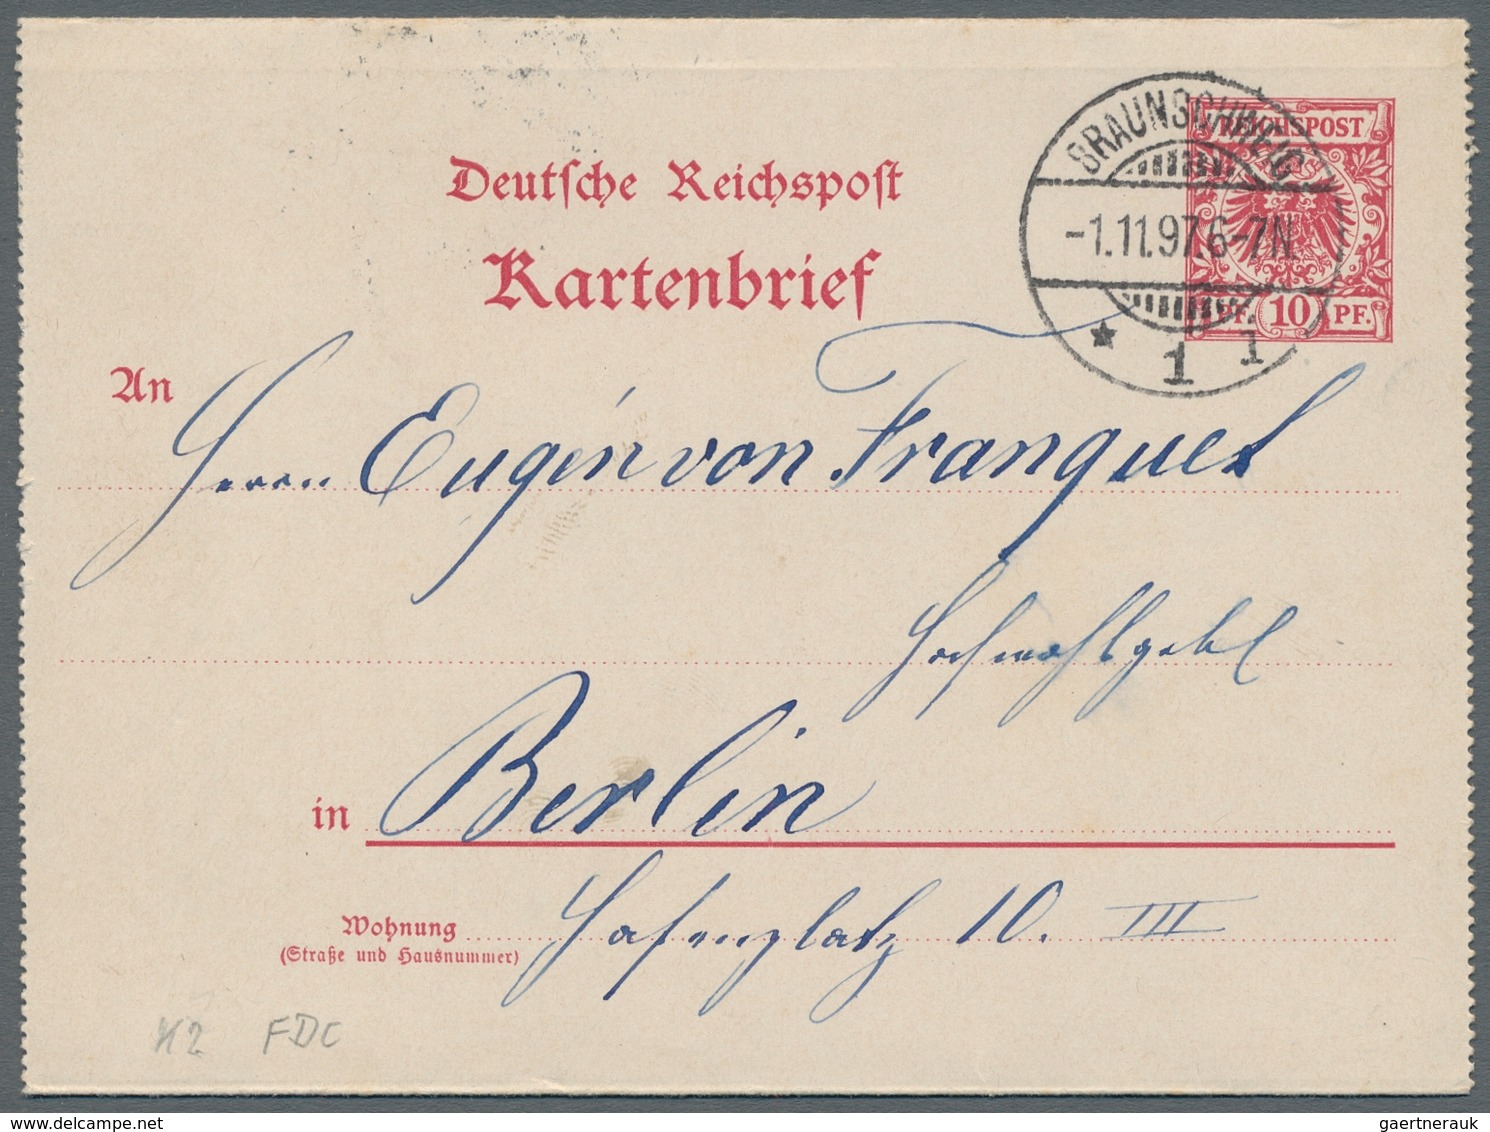 Deutsche Reichspost
Kartenbrief
BRAUNSCHWEIG
-1.11.97.6-7N.
* 1 1
REICHSPOST
PF. 10 PF.
An
Herrn Eugén von Franquet
Hochwohlgebl
in Berlin
Wohnung
(Straße und Hausnummer)
Hafenplatz 10. III
K2 FDC
gaertnerauk